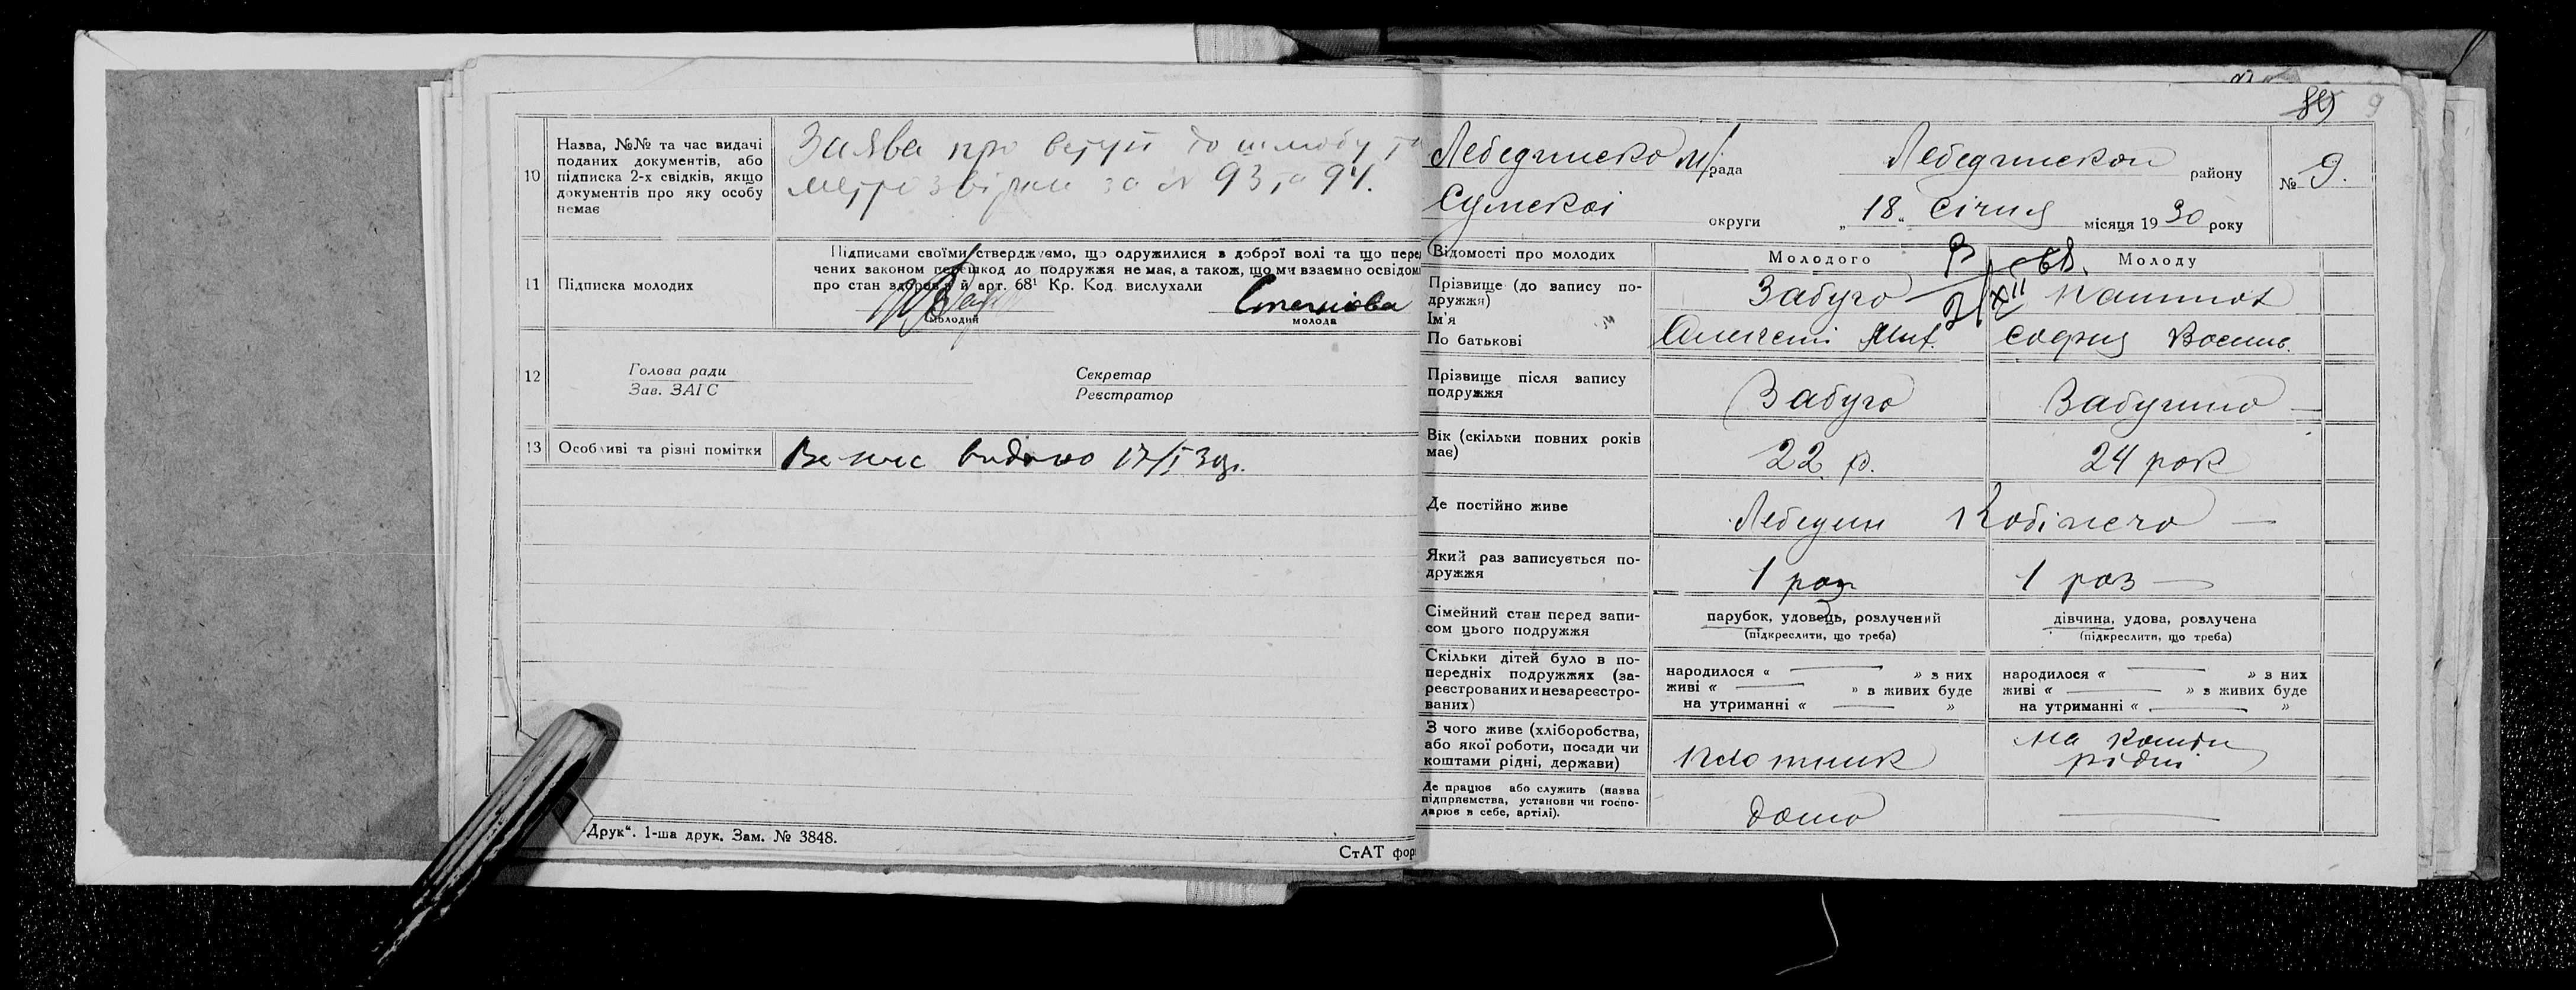 10
Назва, №№ та час видачі
поданих документів, або
підписка 2-х свідків, якщо
документів про яку особу
немає
Заява про вступ до шлюбу та
за № 93 та 94.
11 Підписка молодих
Підписами своїми стверджуємо, що одружилися з доброї волі та що пере
чених законом перешкод до подружжя немає, а також, що ми взаємно освідом
про стан здоров'я й арт. 68¹ Кр. Код вислухали
молодий
молода
12
Голова ради
Зав. ЗАГС
Секретар
Реєстратор
13 Особливі та різні помітки
видано 17/I 30р.
"Друк". 1-ша друк. Зам. № 3848.
СтАТ фор
89 9
Лебединско м/рада Лебединской району № 9.
Сумскоі округи „18" Січня місяця 1930 року
Відомості про молодих Молодого Молоду
Прізвище (до запису по-
дружжя)
Забуго
Ім'я
По батькові
Олексій Мих. София Васил.
Прізвище після запису
подружжя
Забуго
Вік (скільки повних років
має)
22 р. 24 рок
Де постійно живе
Лебедин
Який раз записується по-
дружжя
1 раз 1 раз
Сімейний стан перед запи-
сом цього подружжя
парубок, удовець, розлучений
(підкреслити, що треба)
дівчина, удова, розлучена
(підкреслити, що треба)
Скільки дітей було в по-
передніх подружжях (за-
реєстрованих и незареєстро-
ваних)
народилося « » з них
живі « » з живих буде
на утриманні « »
народилося « » з них
живі « » з живих буде
на утриманні « »
З чого живе (хліборобства,
або якої роботи, посади чи
коштами рідні, держави)
плотник
на кошти
рідні
Де працює або служить (назва
підприємства, установи чи госпо-
дарює в себе, артілі).
дома